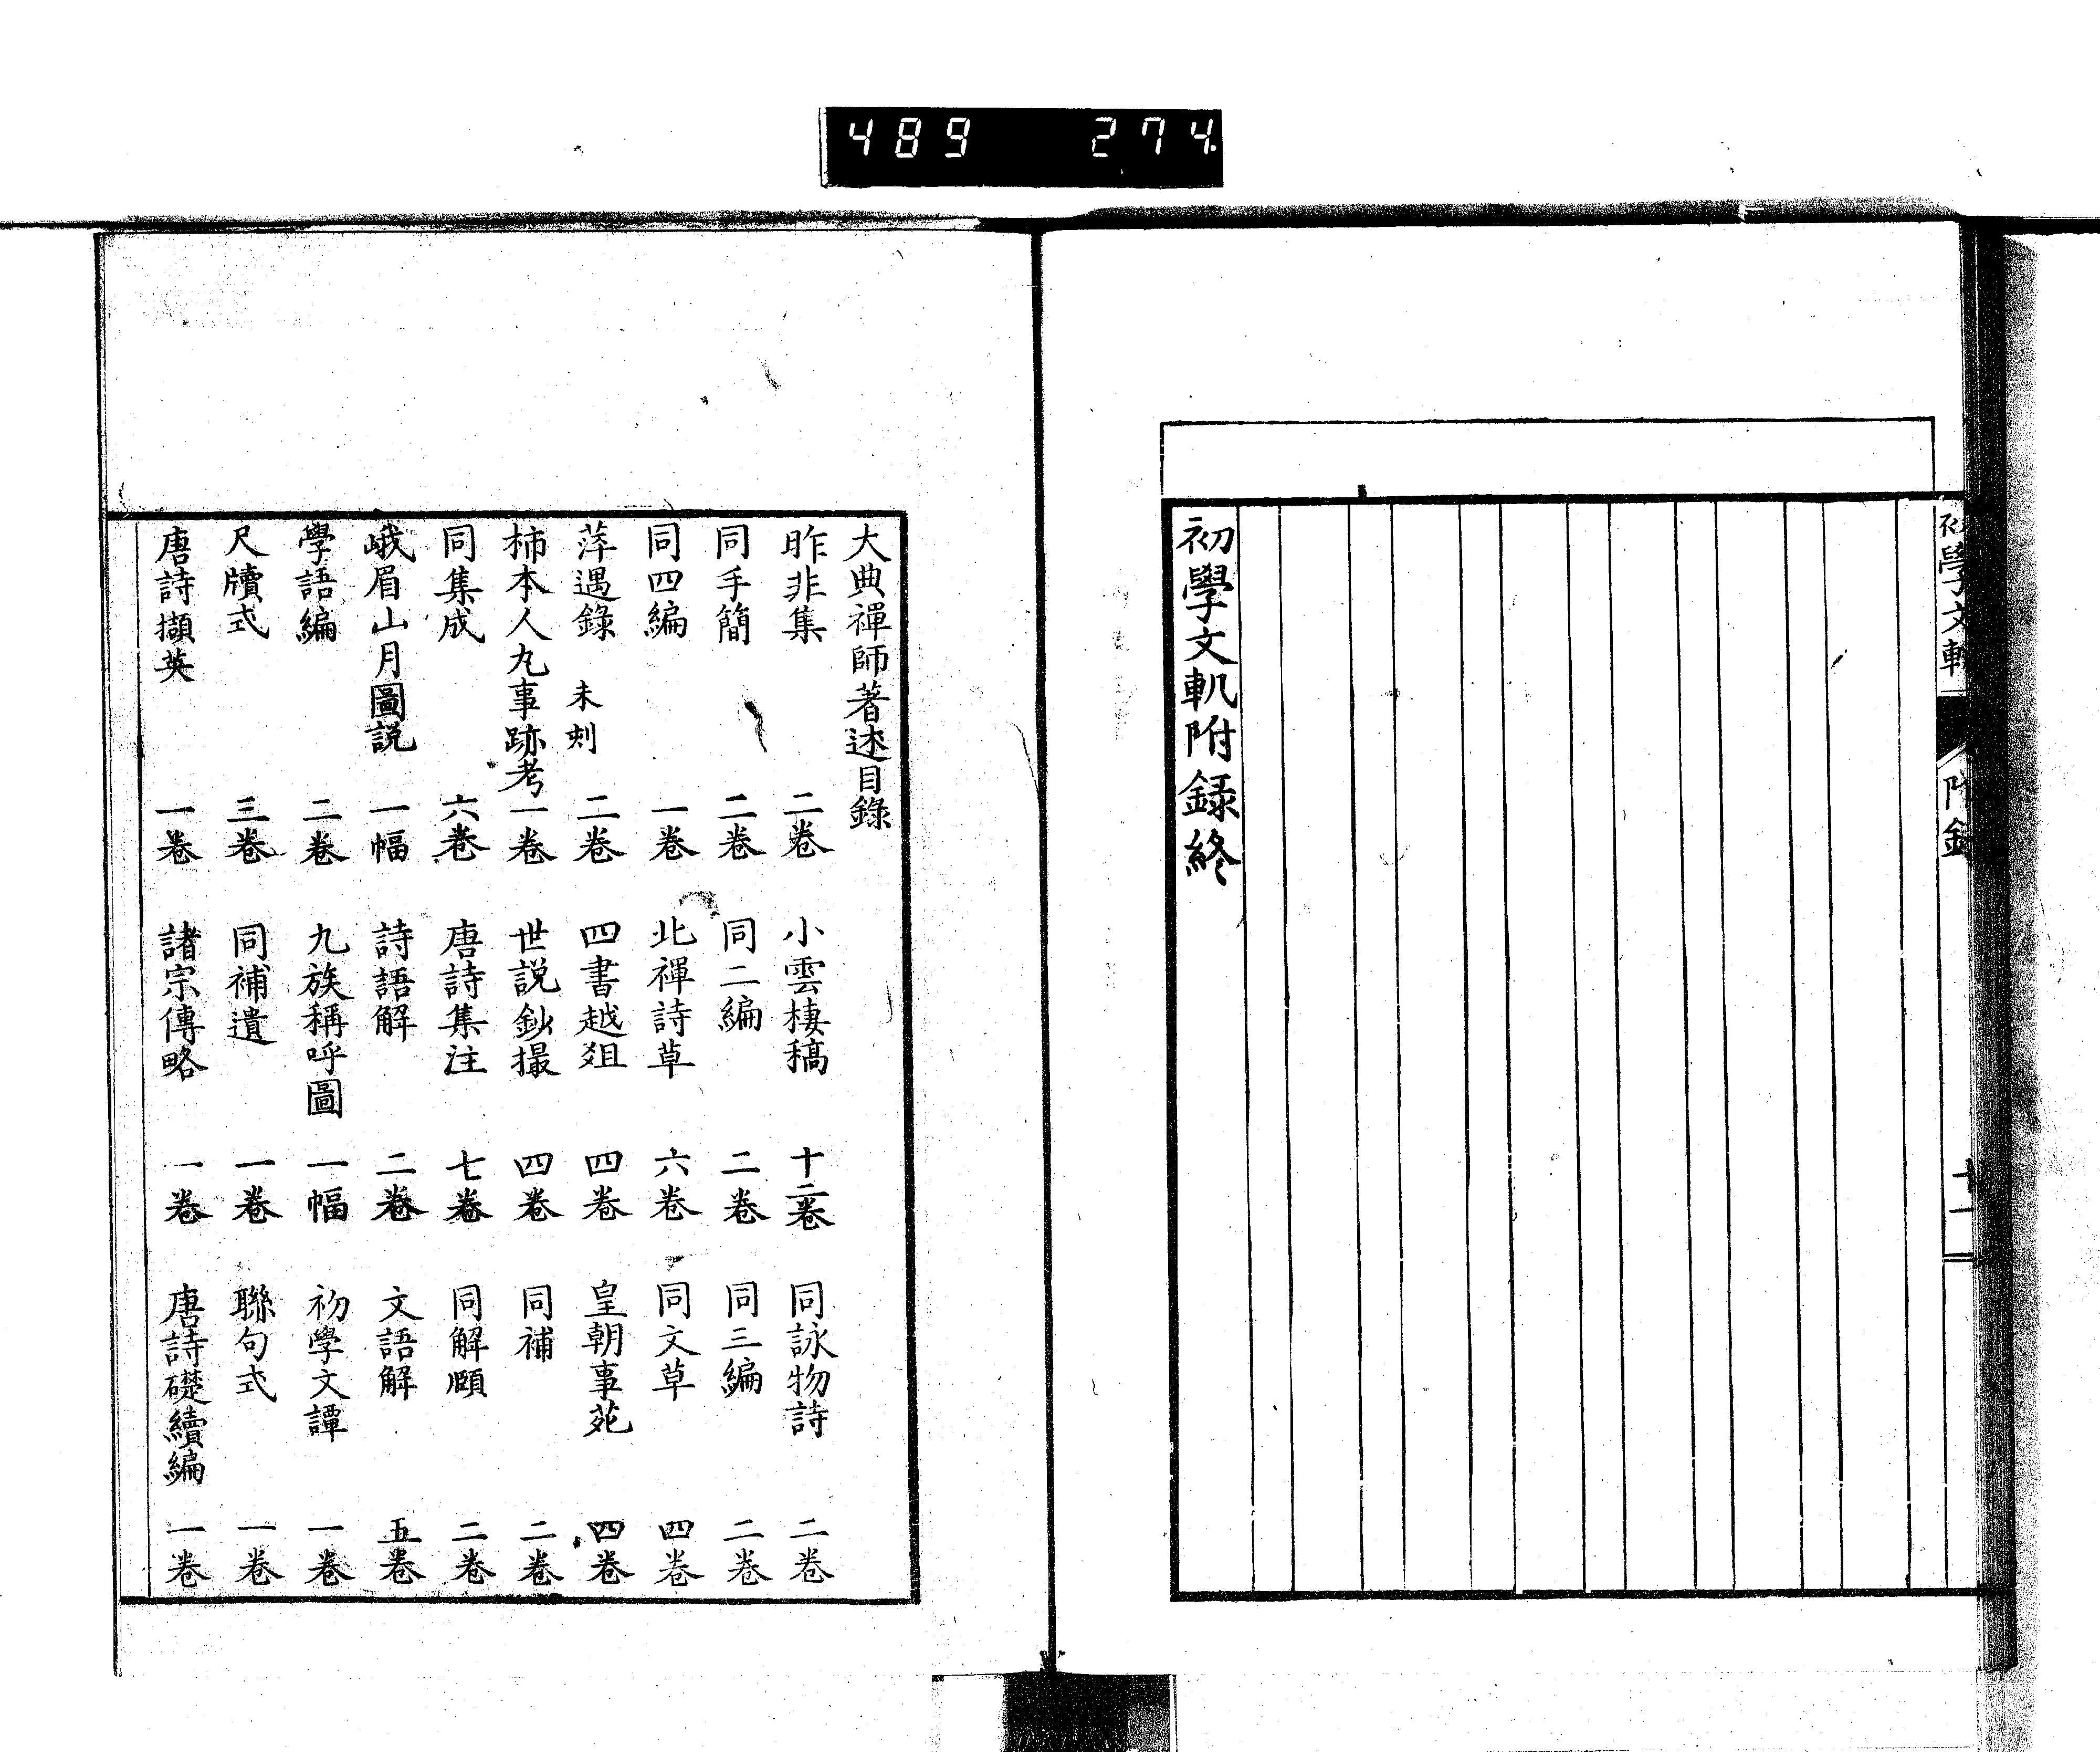 489 274
初學文軌
附録
十一
初學文軌附録終
大典禪師著述目錄
昨非集 二卷 小雲棲稿 十二卷 同詠物詩 二卷
同手簡 二卷 同二編 二卷 同三編 二卷
同四編 一卷 北禪詩草 六卷 同文草 四卷
萍遇錄 未刻 二卷 四書越俎 四卷 皇朝事苑 四卷
柿本人丸事跡考 一卷 世説鈔撮 四卷 同補 二卷
同集成 六卷 唐詩集注 七卷 同解頤 二卷
峨眉山月圖説 一幅 詩語解 二卷 文語解 五卷
學語編 二卷 九族稱呼圖 一幅 初學文譚 一卷
尺牘式 三卷 同補遺 一卷 聯句式 一卷
唐詩擷英 一卷 諸宗傳略 一卷 唐詩礎續編 一卷